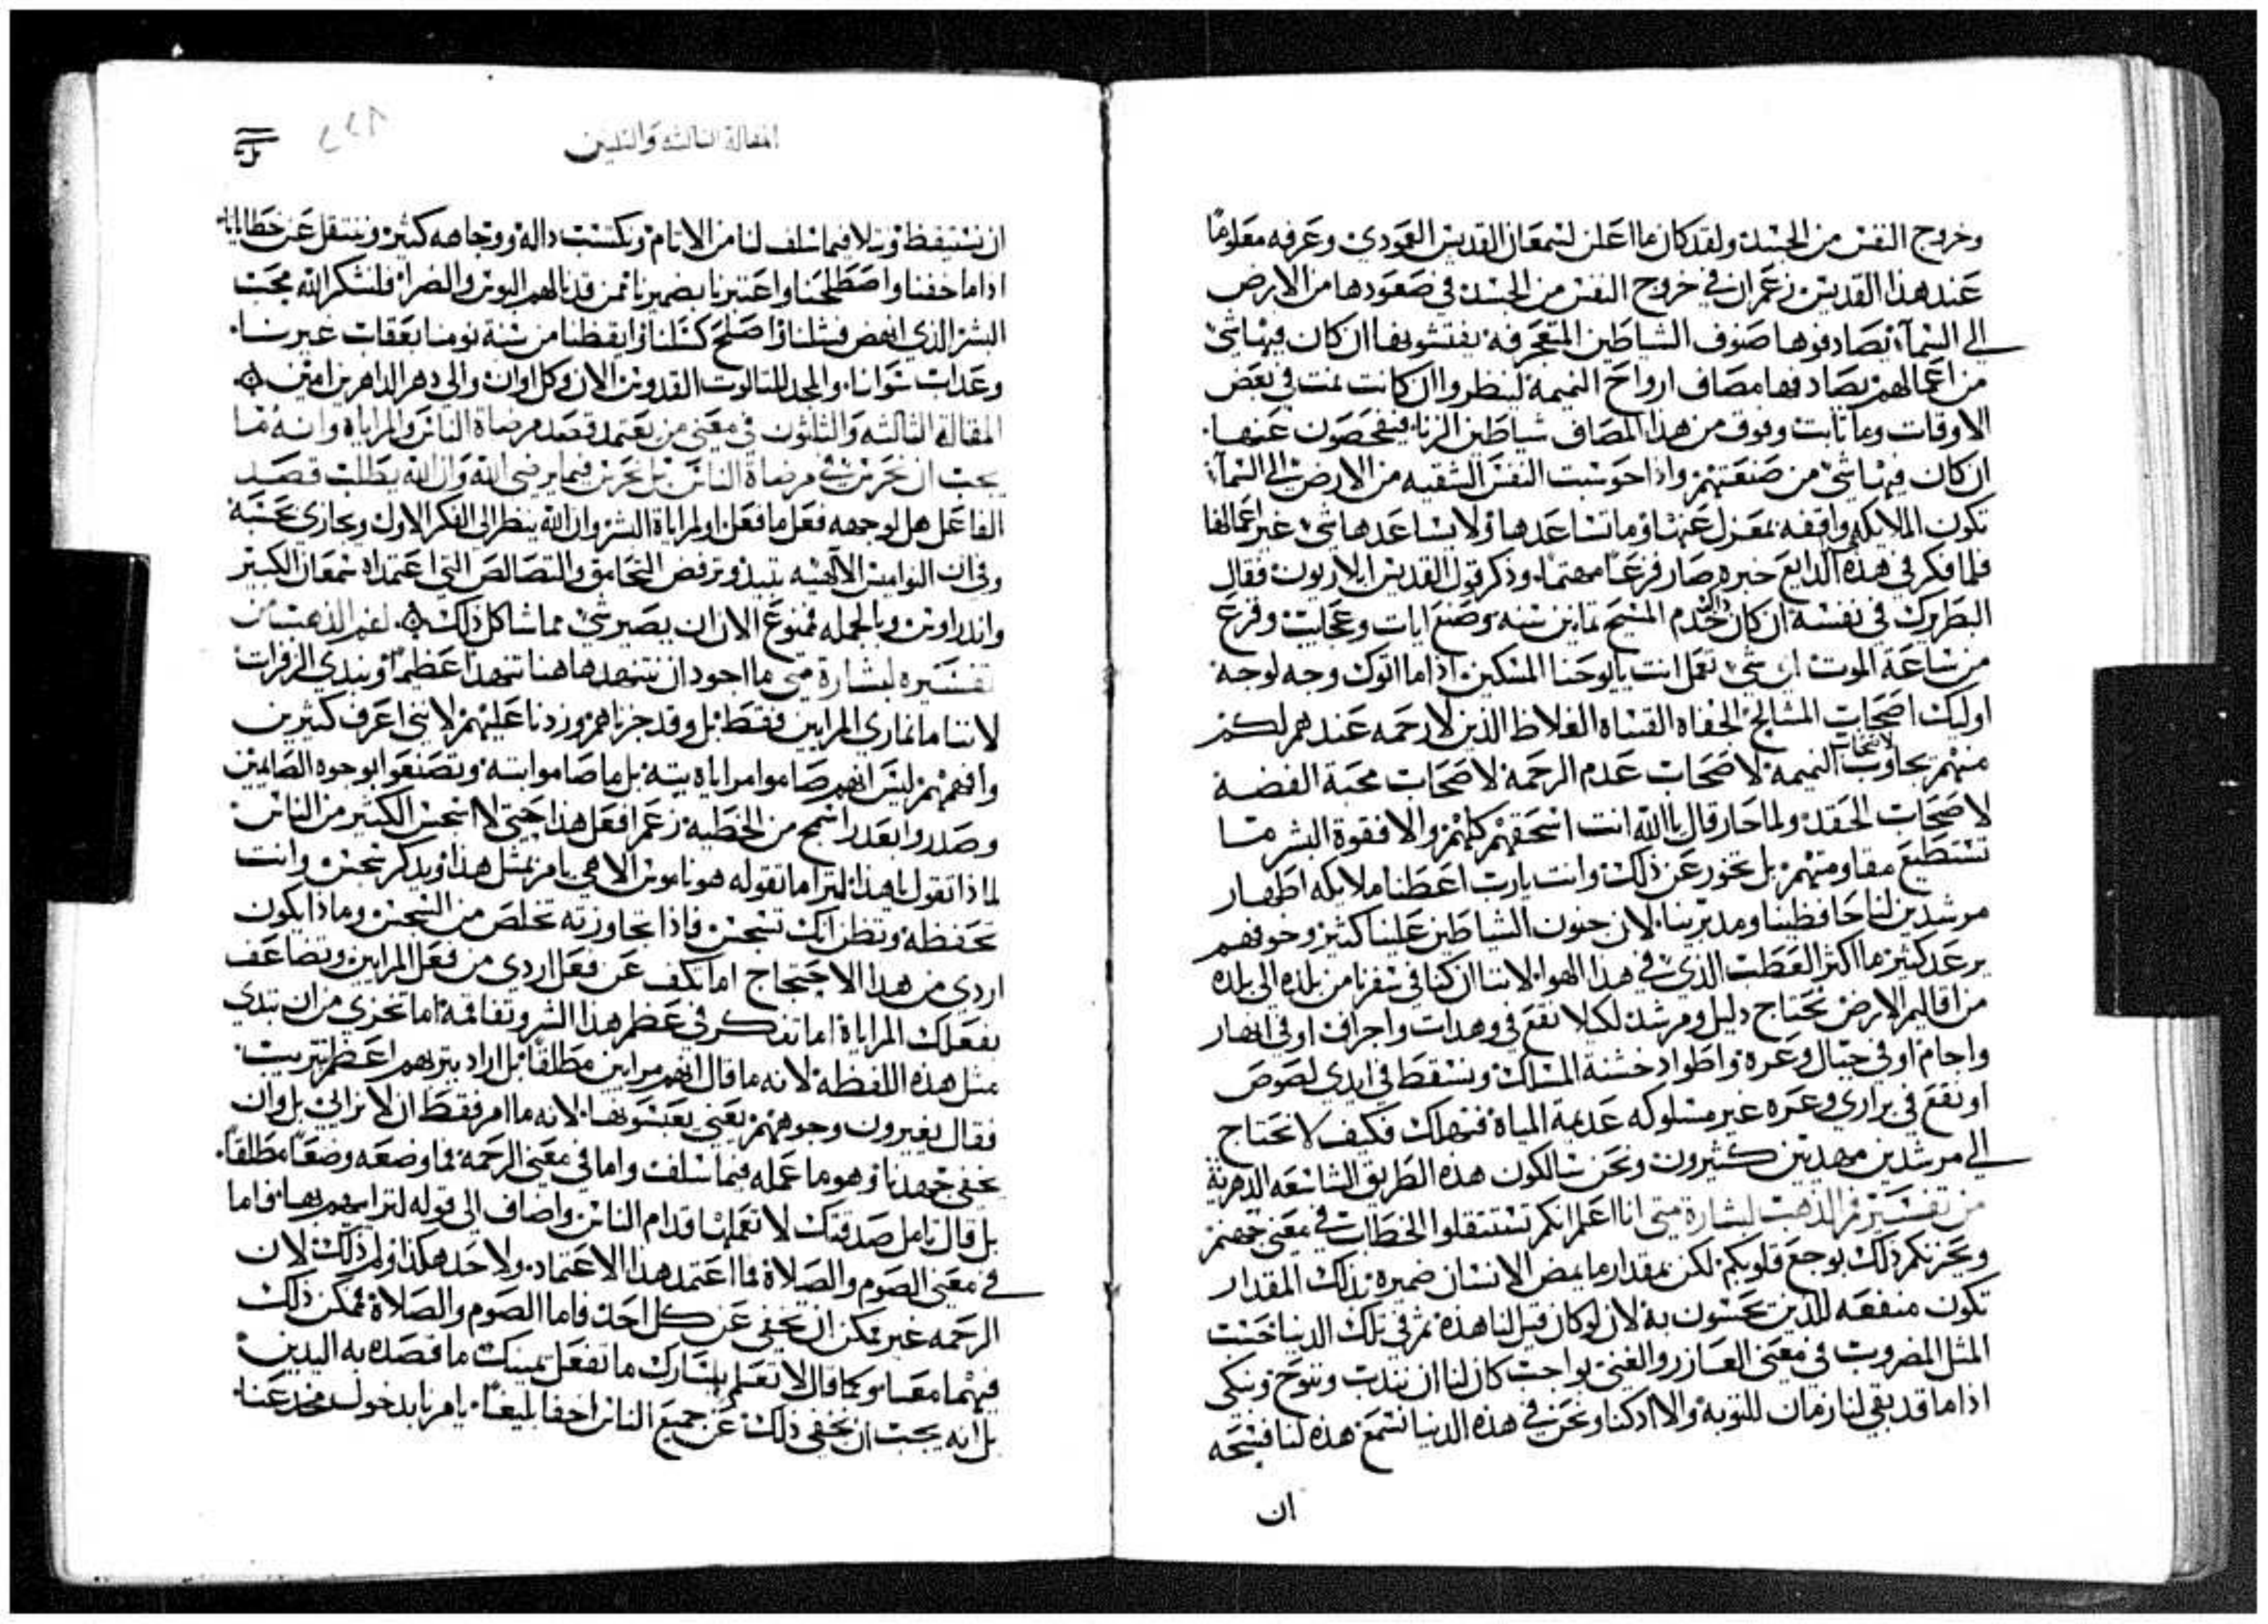 وخروج النفس من الجسد ولقد كان ما اعلن لسمعان القديس العمودي وعرفه معلومًا
عند هذا القديس زعم ان في خروج النفس من الجسد في صعودها من الارض
الي السمآء تصادفوها صفوف الشياطين المتعجرفه يفتشونها ان كان فيها شي
من اعمالهم تصادفها مصاف ارواح النميمه لينظروا ان كانت نمت في بعض
الاوقات وما تابت وفوق من هذا المصاف شياطين الزنا فيفحصون عنها
ان كان فيها شي من صنعتهم واذا حوسبت النفس الشقيه من الارض الي السمآء
تكون الملايكه واقفه بمعزل عنها وما تساعدها ولا يساعدها شي غير اعمالها
فلما فكر في هذه البدايع خبره صار فزعًا مهتمًا وذكر قول القديس ايلاريون فقال
البطريرك في نفسه ان كان خدم المسيح ثمانين سنه وصنع ايات وعجايب وفزع
من ساعة الموت اي شي تعمل انت يا يوحنا المسكين اذا ما اتوك وجه لوجه
اوليك اصحاب المشالح الجفاه القساه الغلاظ الذين لا رحمه عندهم لكم
منهم تجاوب لاصحاب النميمه لاصحاب عدم الرحمه لاصحاب محبة الفضه
لاصحاب الحقد ولما حار قال يا الله انت اسحقهم كلهم والا فقوة البشر ما
تستطيع مقاومتهم بل تخور عن ذلك وانت يارب اعطنا ملايكه اطهار
مرشدين لنا حافظينا ومدبرينا لان جنون الشياطين علينا كثير وخوفهم
يرعد كثير ما اكثر العطب الذي في هذا الهوا لاننا ان كنا في سفرنا من بلده الي بلده
من اقاليم الارض نحتاج دليل ومرشد لكيلا نقع في وهدات واجراف او في انهار
واجام او في جبال وعره واطواد خشنة المسلك ونسقط في ايدي لصوص
او نقع في براري وعره غير مسلوكه عديمة المياه فنهلك فكيف لا نحتاج
الي مرشدين مهديين كثيرون ونحن سالكون هذه الطريق الشاسعه الدهرية
من تفسير فم الذهب لبشارة متي انا اعلم انكم تستثقلوا الخطاب في معني جهنم
ويحزنكم ذلك بوجع قلوبكم لكن بمقدار ما يمض الانسان ضميره بذلك المقدار
تكون منفعه للذين يحسون به لان لو كان قيل لنا هذه ثم في تلك الدنيا حسب
المثل المضروب في معني العازر والغني بواجب كان لنا ان نندب وننوح ونبكي
اذا ما قد بقي لنا زمان للتوبه والا اذ كنا ونحن في هذه الدنيا نسمع هذه لنا فسحه
ان
المقالة الثالثه والثلثين
ان نستيقظ ونتلافي ما سلف لنا من الاثام ونكتسب داله ووجاهه كثير وننتقل عن خطايانا
اذا ما خفنا واصطلحنا واعتبرنا بضميرنا ممن قد نالهم البوس والضرا فلنشكر الله محب
البشر الذي انهض فشلنا واصلح كسلنا وايقظنا من سنة نومنا بعقاب غيرنا
وعذاب سوانا والمجد للثالوث القدوس الان وكل اوان والي دهر الداهرين امين
المقالة الثالثه والثلثون في معني من يعتمد قصد مرضاة الناس والمراياه وانه ما
يجب ان نحرص في مرضاة الناس بل نحرص فيما يرضي الله وان الله يطلب قصد
الفاعل هل لوجهه فعل ما فعل او لمراياة البشر وان الله ينظر الي الفكر الاول ويجازي بحسبه
وفي ان النواميس الالهيه تنبذ وترفض التحامق والتصالص التي اعتمداه سمعان الكبير
واندراوس وبالجمله فممنوع الان ان يصير شي مما شاكل ذلك لفم الذهب من
تفسيره لبشارة متي ما اجود ان نتنهد هاهنا تنهدًا عظيمًا ونبدي الزفرات
لاننا ما نماري المرايين فقط بل وقد جزناهم وزدنا عليهم لانني اعرف كثيرين
وافهمهم ليس انهم صاموا مراياه بته بل ما صاموا بته وتصنعوا بوجوه الصايمين
وصدروا بعذر اسمج من الخطيه زعم افعل هذا حتي لا اسجس الكثير من الناس
لماذا تقول يا هذا اترا ما تقوله هو ناموس الاهي يامر بمثل هذا ويذكر سجس وانت
تحفظه وتظن انك تسجس فاذا تجاوزته تخلص من السجس وماذا يكون
اردي من هذا الاحتجاج اما تكف عن فعل اردي من فعل المرايين وتضاعف
بفعلك المراياة اما تفكر في عظم هذا الشر وتفاقمه اما تخزي من ان تبدي
مثل هذه اللفظه لانه ما قال انهم مرايين مطلقًا بل اراد يثربهم اعظم تثريب
فقال يغيرون وجوههم يعني يعبسونها لانه ما امر فقط ان لا نرائي بل وان
نخفي جهدنا وهو ما عمله فيما سلف واما في معني الرحمه فما وضعه وضعًا مطلقًا
بل قال تامل صدقتك لا تعملها قدام الناس واضاف الي قوله لتراايهم بها واما
في معني الصوم والصلاة فما اعتمد هذا الاعتماد ولا حد هكذا ولم ذلك لان
الرحمه غير ممكن ان تخفي عن كل احد فاما الصوم والصلاة فممكن ذلك
فيهما معًا وكما قال لا تعلم يسارك ما تفعل يمينك ما قصده به اليدين
بل انه يجب ان نخفي ذلك عن جميع الناس اخفا بليغًا يامرنا بدخول مخدعنا